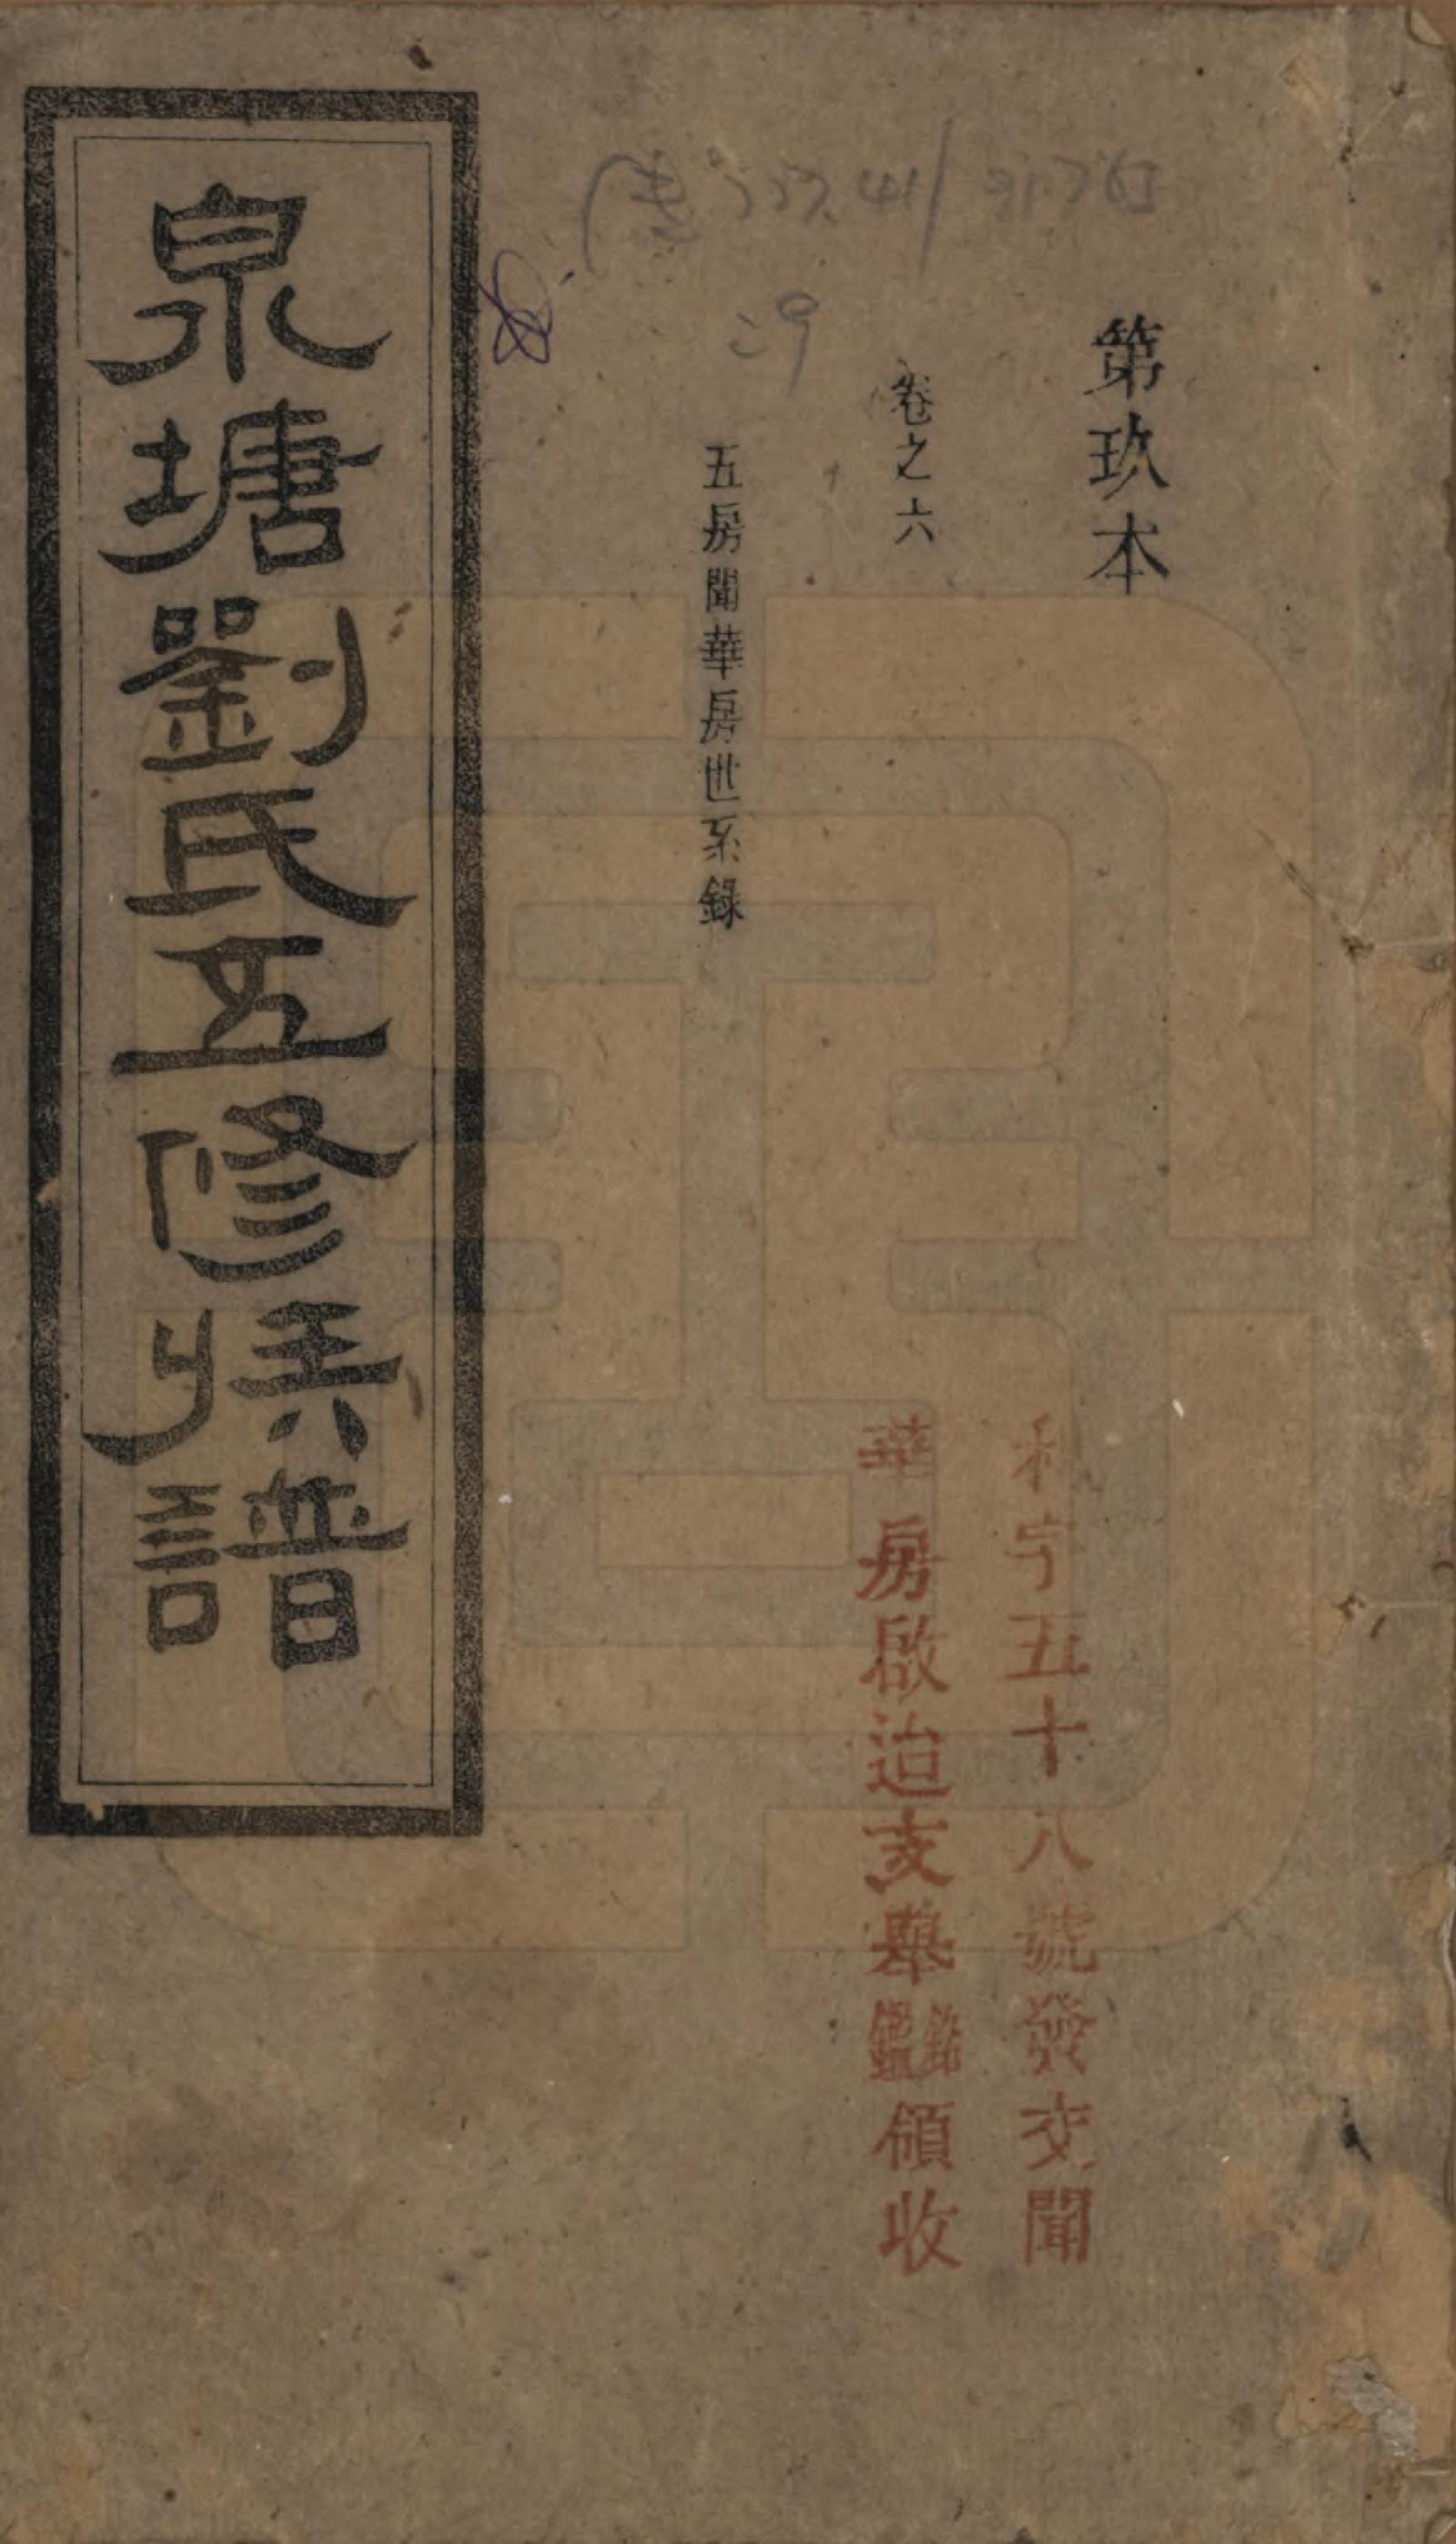 第玖本
卷之六
五房聞華房世系錄
字五十八號發交聞
華房啟迨支舉鑑銘領收
泉塘劉氏五修族譜